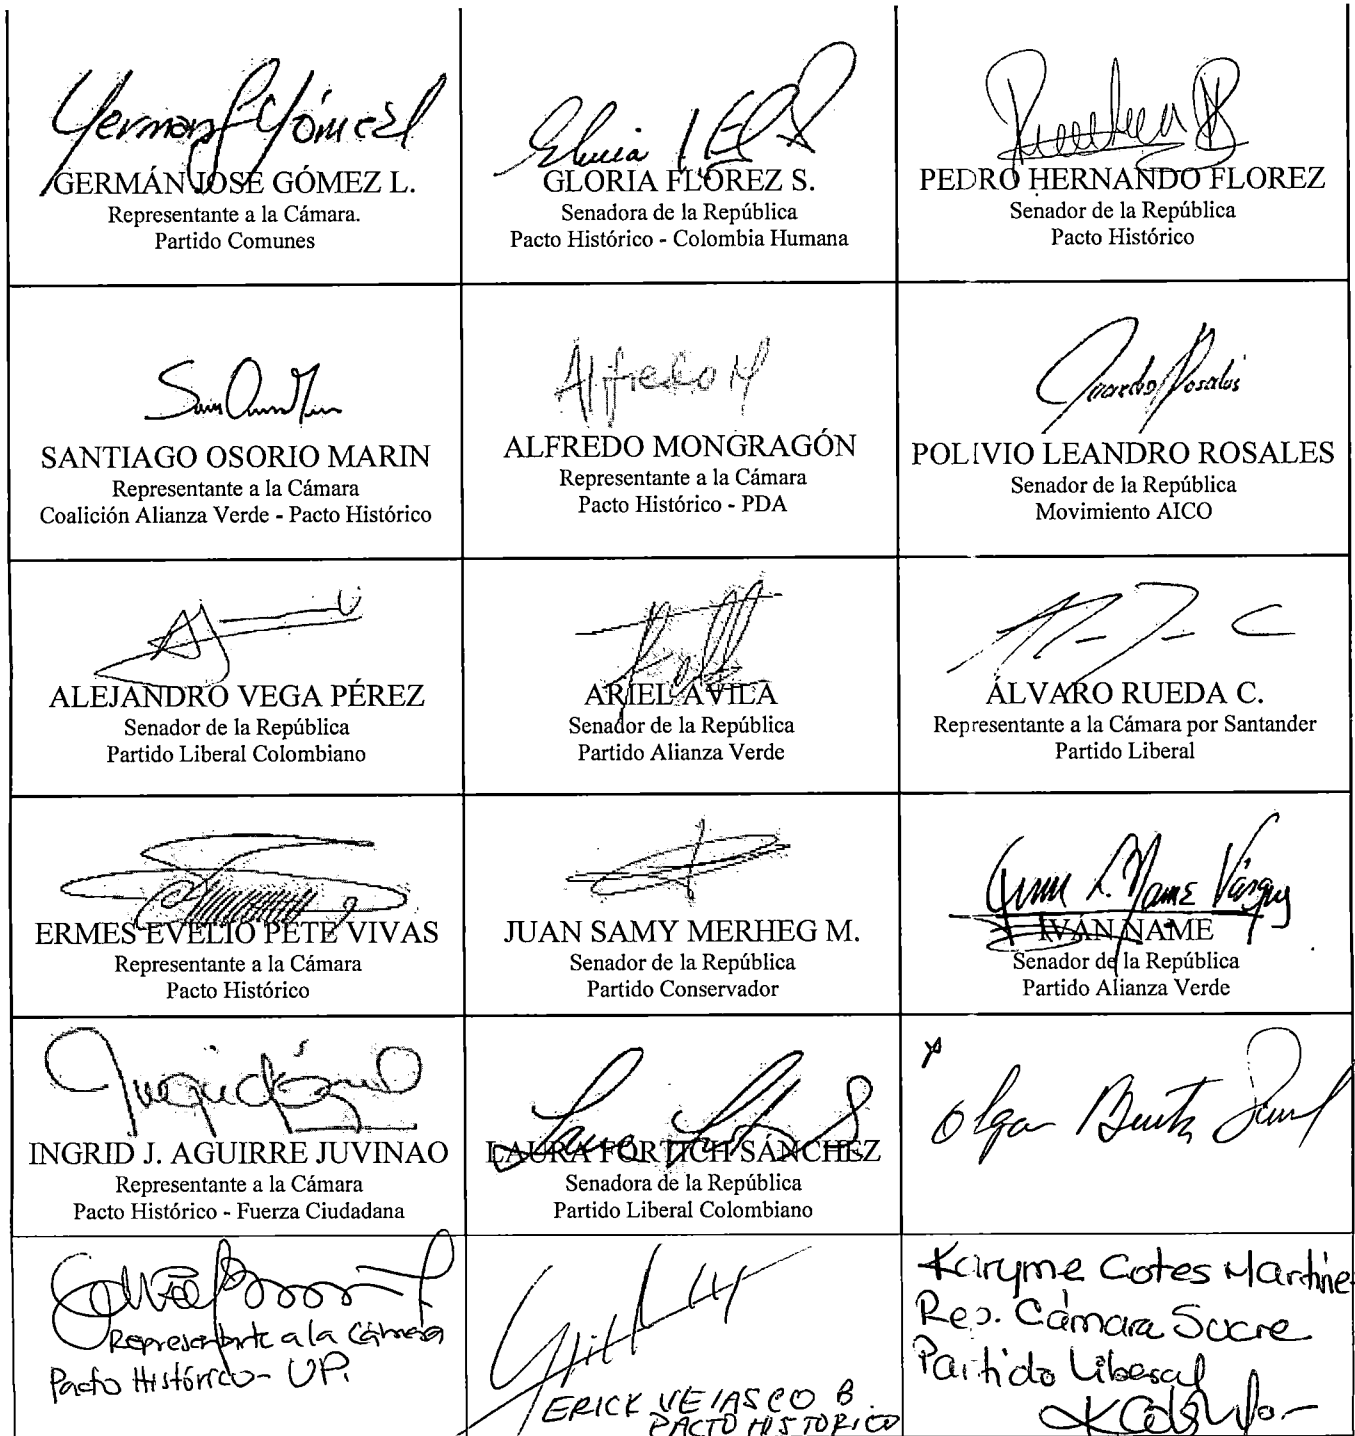 GERMÁN JOSÉ GÓMEZ L.
Representante a la Cámara.
Partido Comunes
GLORIA FLÓREZ S.
Senadora de la República
Pacto Histórico - Colombia Humana
PEDRO HERNANDO FLOREZ
Senador de la República
Pacto Histórico
SANTIAGO OSORIO MARIN
Representante a la Cámara
Coalición Alianza Verde - Pacto Histórico
Alfredo M
ALFREDO MONGRAGÓN
Representante a la Cámara
Pacto Histórico - PDA
POLIVIO LEANDRO ROSALES
Senador de la República
Movimiento AICO
ALEJANDRO VEGA PÉREZ
Senador de la República
Partido Liberal Colombiano
ARIEL AVILA
Senador de la República
Partido Alianza Verde
ÁLVARO RUEDA C.
Representante a la Cámara por Santander
Partido Liberal
ERMES EVELIO PETE VIVAS
Representante a la Cámara
Pacto Histórico
JUAN SAMY MERHEG M.
Senador de la República
Partido Conservador
IVÁN NAME
Senador de la República
Partido Alianza Verde
INGRID J. AGUIRRE JUVINAO
Representante a la Cámara
Pacto Histórico - Fuerza Ciudadana
LAURA FORTICH SÁNCHEZ
Senadora de la República
Partido Liberal Colombiano
Olga
Representante a la Cámara
Pacto Histórico - UP.
ERICK VELASCO B.
PACTO HISTORICO
Karyme Cotes Martine
Rep. Cámara Sucre
Partido Liberal